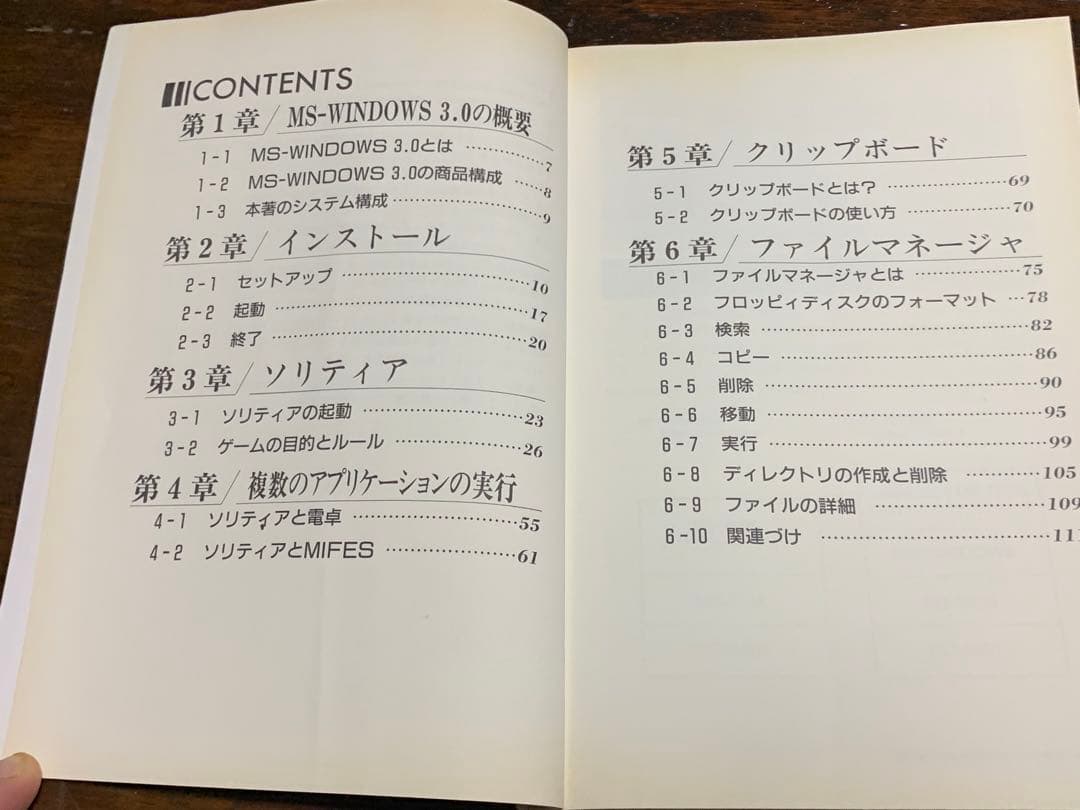 CONTENTS
第1章/MS-WINDOWS 3.0の概要
1-1 MS-WINDOWS 3.0とは ……………7
1-2 MS-WINDOWS 3.0の商品構成 ……8
1-3 本著のシステム構成……………………9
第2章/インストール
2-1 セットアップ ……………………………10
2-2 起動 ………………………………………17
2-3 終了 ………………………………………20
第3章/ソリティア
3-1 ソリティアの起動 ………………………23
3-2 ゲームの目的とルール …………………26
第4章/複数のアプリケーションの実行
4-1 ソリティアと電卓 ………………………55
4-2 ソリティアとMIFES ……………………61
第5章/クリップボード
5-1 クリップボードとは? …………………69
5-2 クリップボードの使い方 ………………70
第6章/ファイルマネージャ
6-1 ファイルマネージャとは ………………75
6-2 フロッピィディスクのフォーマット …78
6-3 検索 ………………………………………82
6-4 コピー ……………………………………86
6-5 削除 ………………………………………90
6-6 移動 ………………………………………95
6-7 実行 ………………………………………99
6-8 ディレクトリの作成と削除 ……………105
6-9 ファイルの詳細 …………………………109
6-10 関連づけ …………………………………111